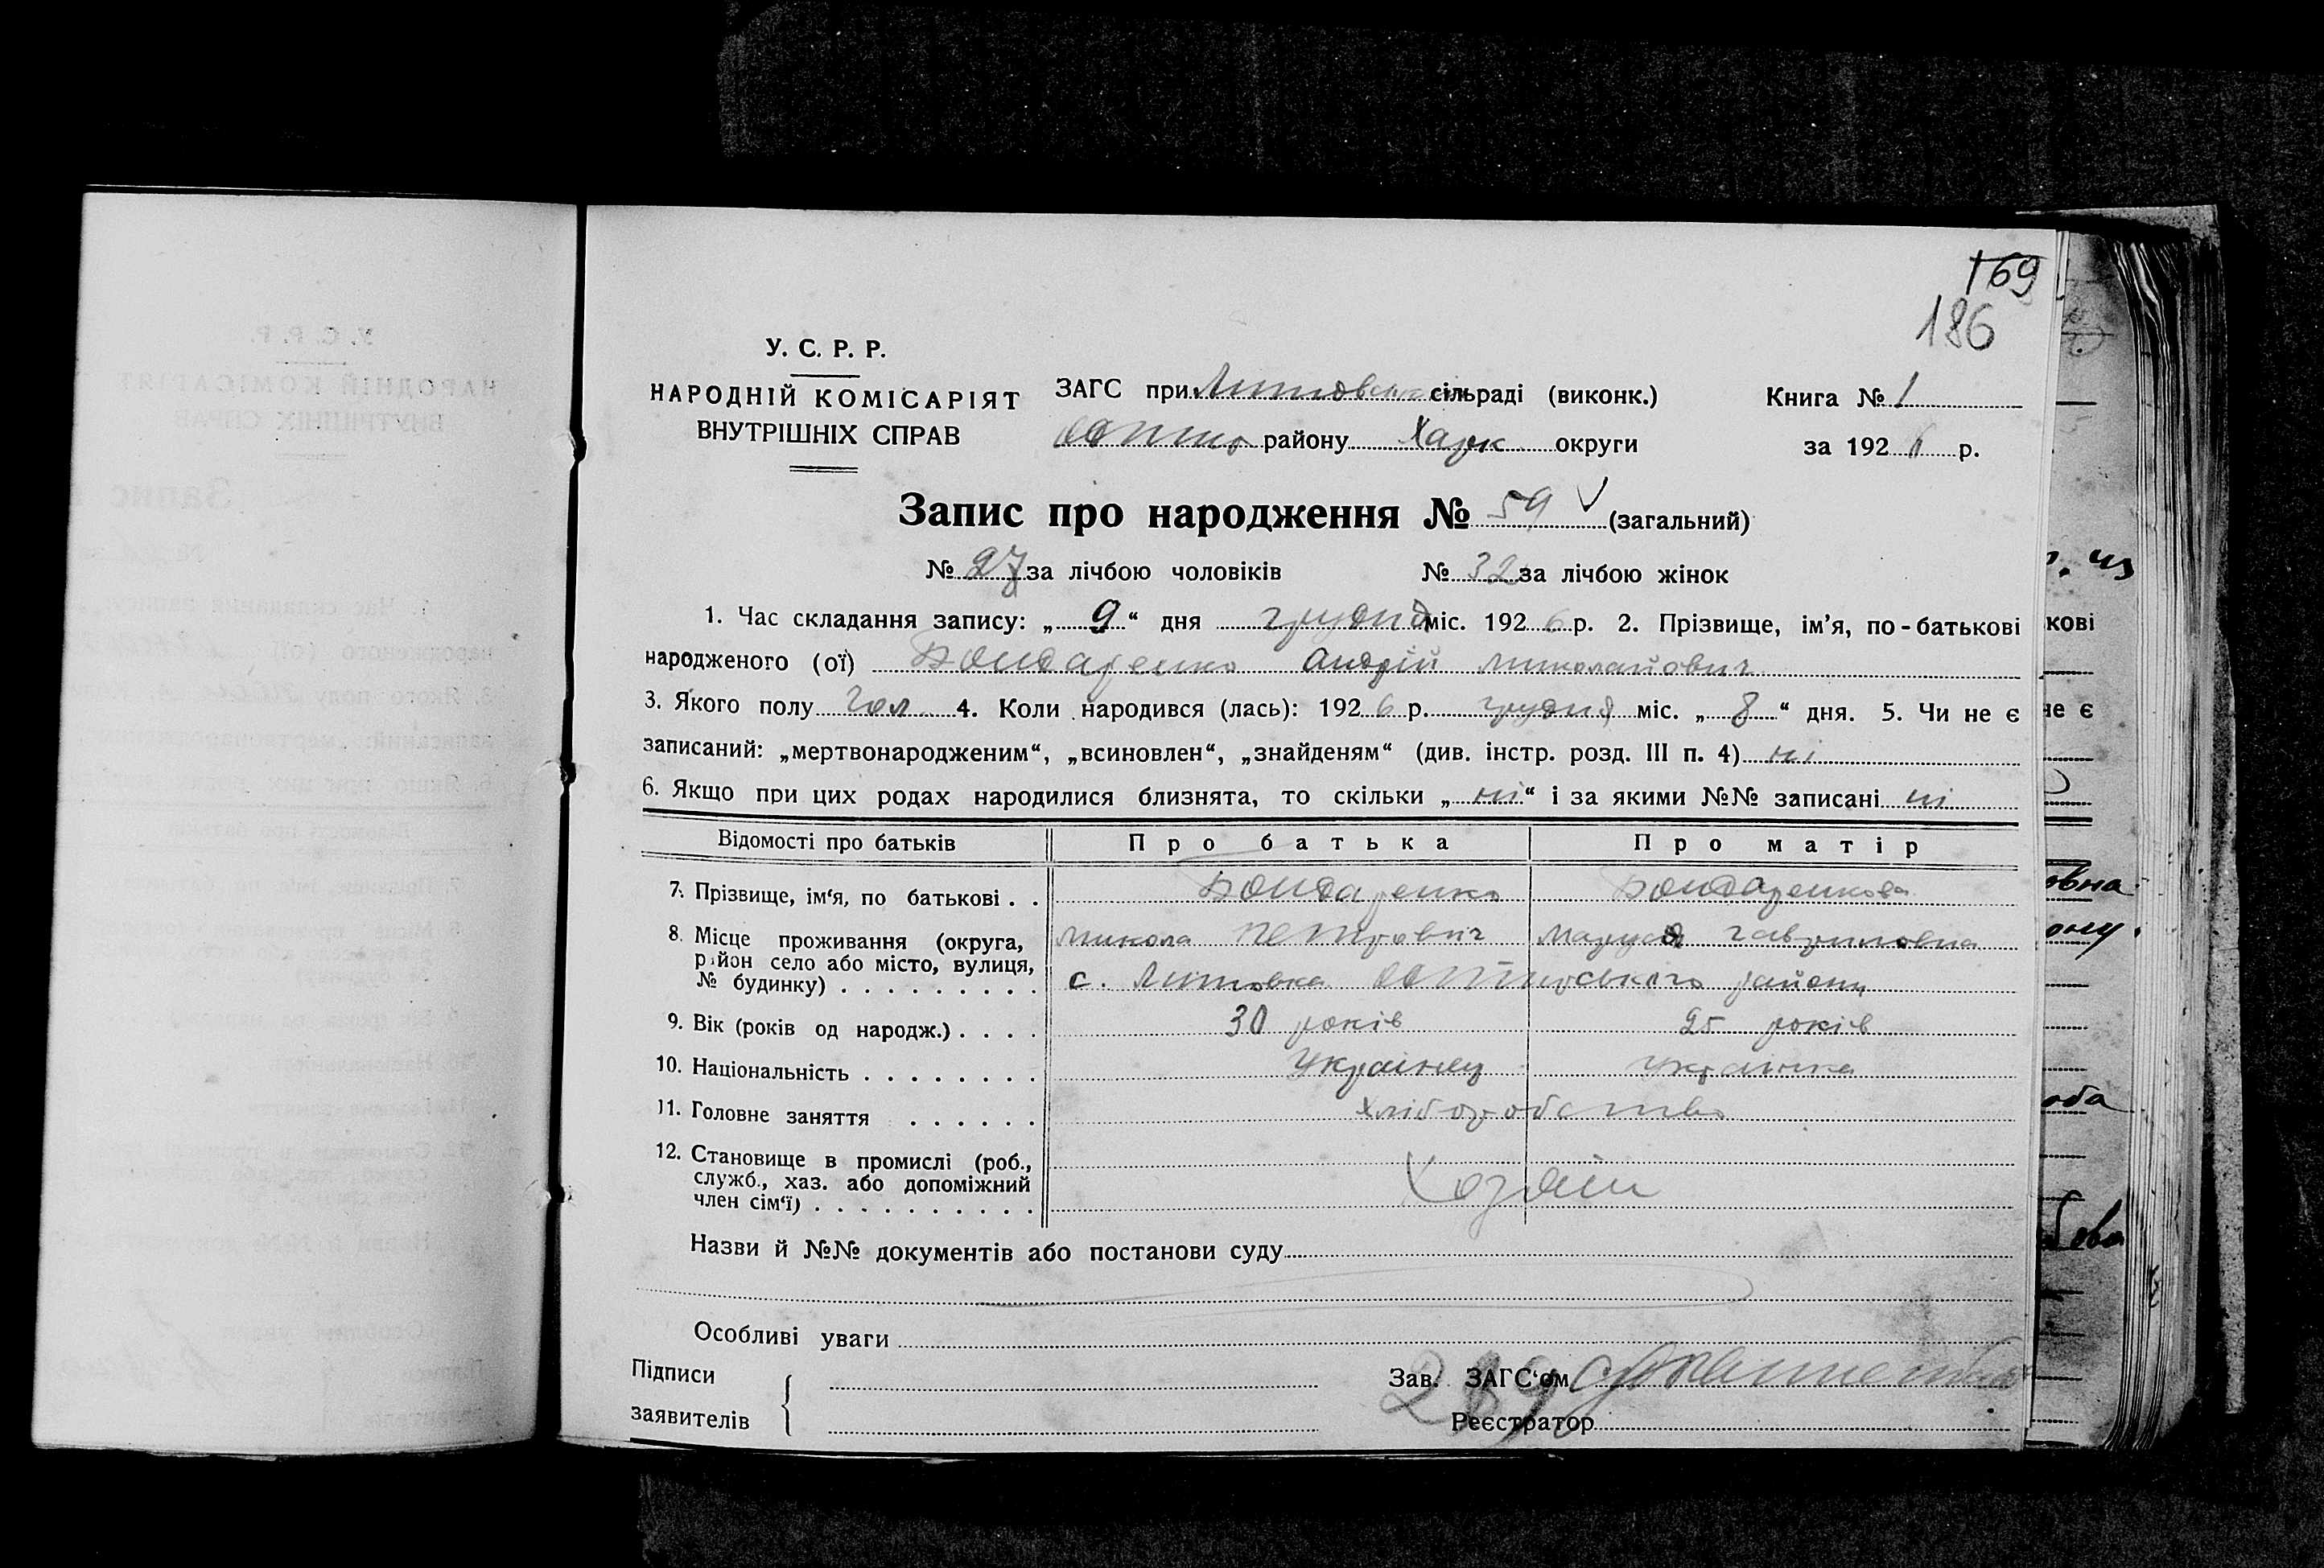 169
186
У. С. Р. Р.
НАРОДНІЙ КОМІСАРІЯТ
ВНУТРІШНІХ СПРАВ
ЗАГС при Липовськ сільраді (виконк.)
району Харк округи
Книга № 1
за 1926 р.
Запис про народження № 59 (загальний)
№ 27 за лічбою чоловіків № 32 за лічбою жінок
1. Час складання запису: „ 9 “ дня грудня міс. 1926 р. 2. Прізвище, ім'я, по-батькові
народженого (ої) Бондаренко Андрій Миколайович
3. Якого полу Чол 4. Коли народився (лась): 1926 р. грудня міс. „ 8 “ дня. 5. Чи не є
записаний: „мертвонародженим“, „всиновлен“, „знайденям“ (див. інстр. розд. III п. 4) ні
6. Якщо при цих родах народилися близнята, то скільки „ ні “ і за якими №№ записані ні
Відомості про батьків Про батька Про матір
7. Прізвище, ім‘я, по батькові . . Бондаренко Бондаренкова
8. Місце проживання (округа, Микола Петрович Маруся Гавриловна
район село або місто, вулиця,
№ будинку) . . . . . . . . . с. Липовка району
9. Вік (років од народж.) . . . . 30 років 25 років
10. Національність . . . . . . . . Українец Українка
11. Головне заняття . . . . . . Хліборобство
12. Становище в промислі (роб.,
служб., хаз. або допоміжний Хозяїн
член сім‘ї) . . . . . . . . . .
Назви й №№ документів або постанови суду
Особливі уваги
Підписи
заявителів
Зав. ЗАГС‘ом
Реєстратор